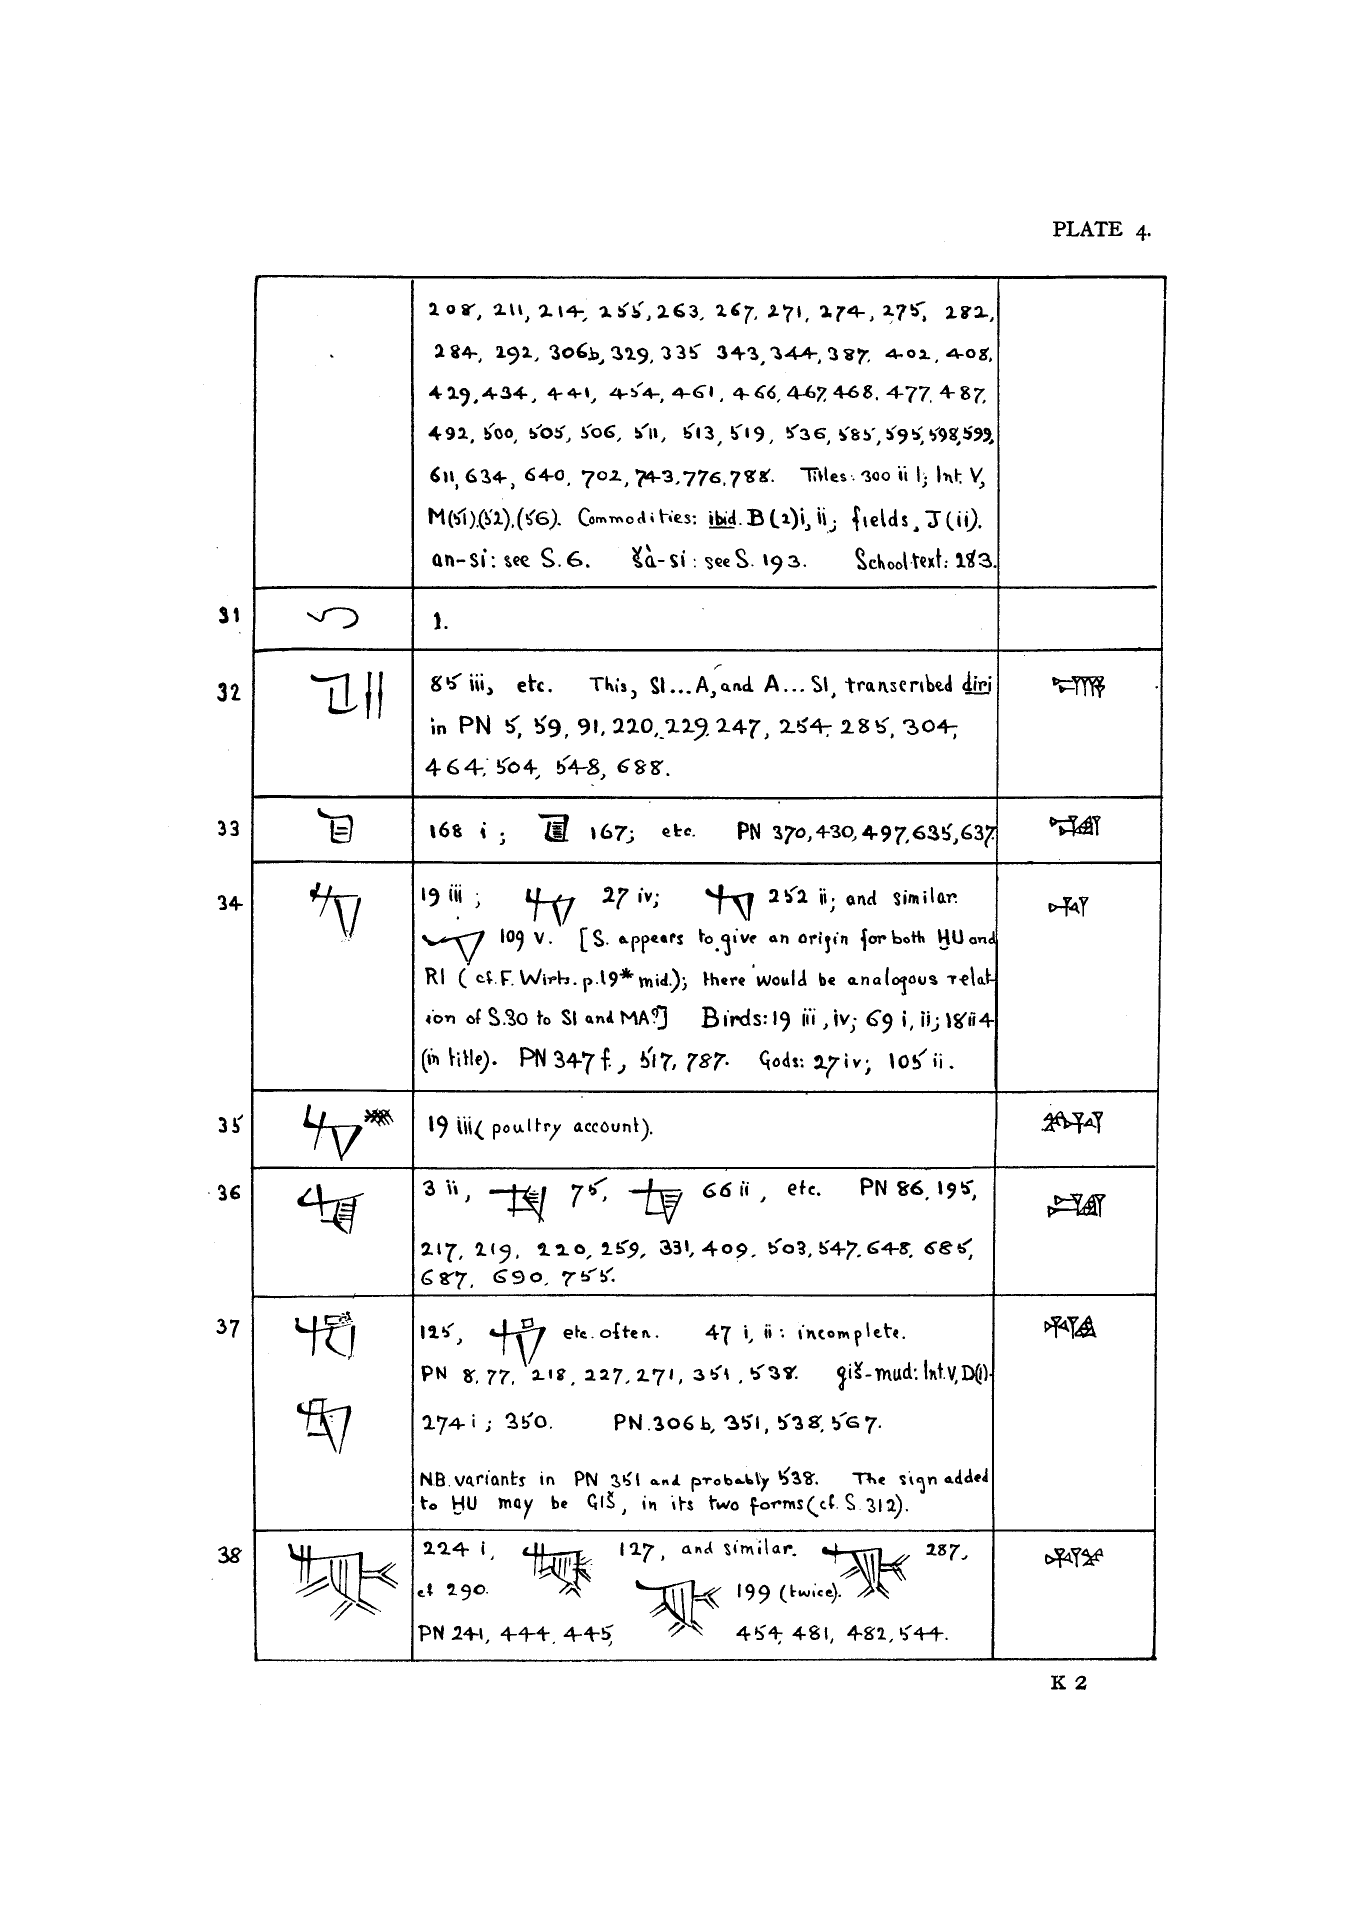 PLATE 4.
208, 211, 214, 255, 263, 267, 271, 274, 275, 282,
284, 292, 306b, 329, 335 343, 344, 387, 402, 408,
429, 434, 441, 454, 461, 466, 467, 468, 477, 487,
492, 500, 505, 506, 511, 513, 519, 536, 585, 595, 598, 599,
611, 634, 640, 702, 743, 776, 788. Titles: 300 ii 1; Int. V,
M(51),(52),(56). Commodities: ibid. B(2)i, ii; fields, J(ii).
an-si: see S. 6. šà-si: see S. 193. School text: 283.
31 1.
32 85 iii, etc. This, SI...A, and A...SI, transcribed diri
in PN 5, 59, 91, 220, 229, 247, 254, 285, 304,
464, 504, 548, 688.
33 168 i; 167; etc. PN 370, 430, 497, 635, 637.
34 19 iii; 27 iv; 252 ii; and similar.
109 v. [S. appears to give an origin for both ḪU and
RI (cf. F. Wirts. p. 19* mid.); there would be analogous relat-
ion of S.30 to SI and MA?] Birds: 19 iii, iv; 69 i, ii; 18 ii 4
(in title). PN 347 f., 517, 787. Gods: 27 iv; 105 ii.
35 19 iii (poultry account).
36 3 ii, 75, 66 ii, etc. PN 86, 195,
217, 219, 220, 259, 331, 409, 503, 547, 648, 685,
687, 690, 755.
37 125, etc. often. 47 i, ii: incomplete.
PN 8, 77, 218, 227, 271, 351, 538. giš-mud: Int. V, D(i).
274 i; 350. PN. 306 b, 351, 538, 567.
NB. variants in PN 351 and probably 538. The sign added
to ḪU may be GIŠ, in its two forms (cf. S. 312).
38 224 i, 127, and similar. 287,
cf 290. 199 (twice).
PN 241, 444, 445, 454, 481, 482, 544.
K 2